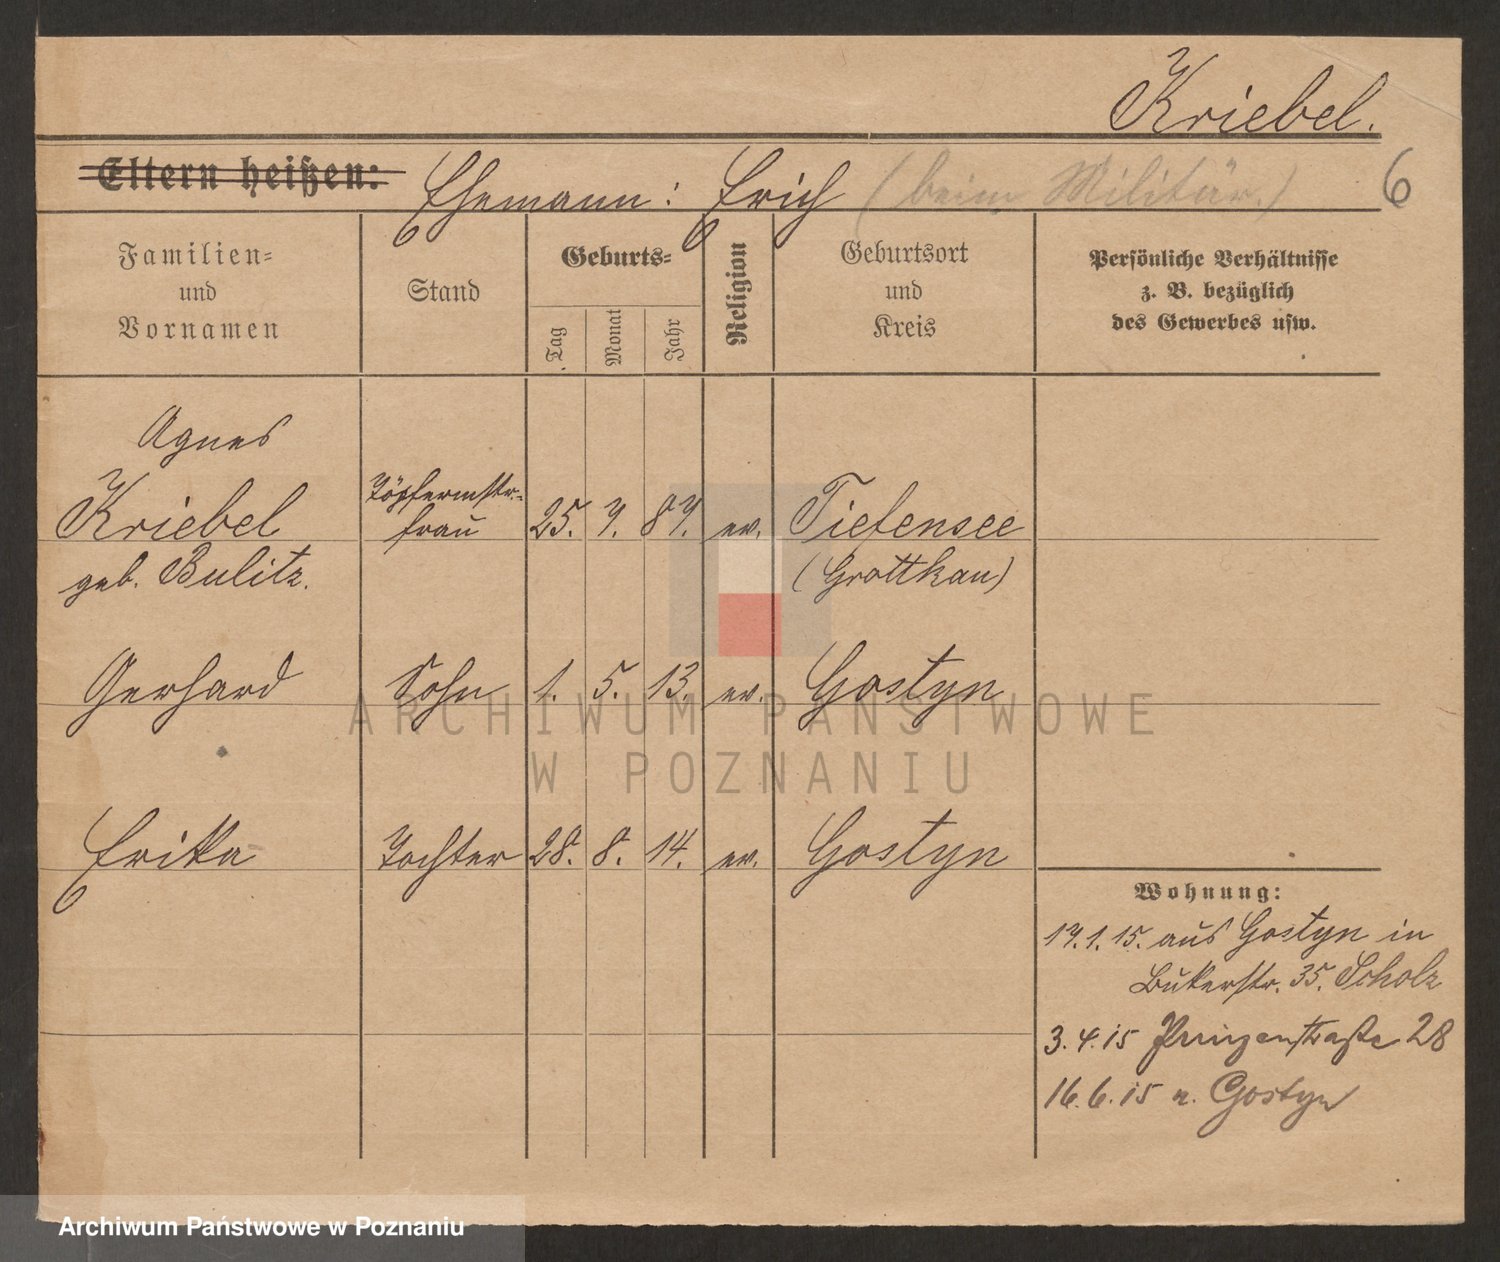 Kriebel.
Eltern heißen: Ehemann: Erich (beim Militär.) 6
Familien-
und
Vornamen
Stand
Geburts-
Tag
Monat
Jahr
Religion
Geburtsort
und
Kreis
Persönliche Verhältnisse
z. B. bezüglich
des Gewerbes usw.
Agnes
Kriebel
geb. Bulitz.
Töpfermstr.-
frau
25. 7. 87. ev. Tiefensee
(Grottkau)
Gerhard Sohn 1. 5. 13. ev. Gostyn
Erikka Tochter 28. 8. 14. ev. Gostyn
Wohnung:
17.1.15. aus Gostyn in
Bukerstr. 35. Scholz
3.4.15 Prinzenstraße 28
16.6.15 n. Gostyn
ARCHIWUM PAŃSTWOWE
W POZNANIU
Archiwum Państwowe w Poznaniu